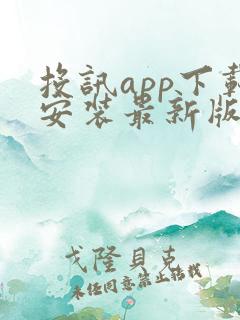 投訊app下載
安装最新版
戈隆貝克
未任同意禁止轉載